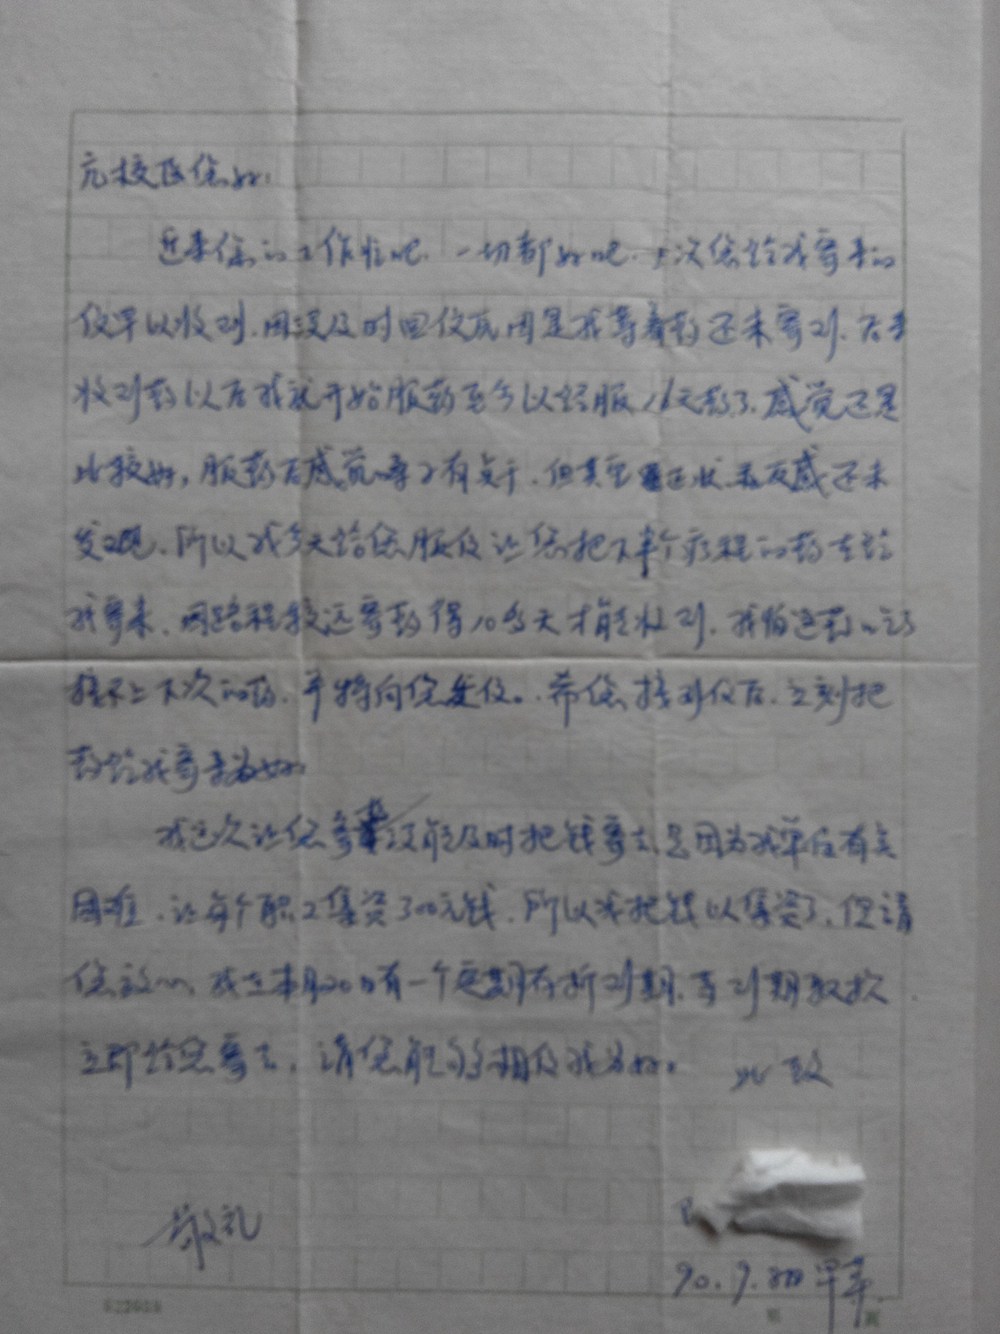 亢校医您好:
近来您的工作忙吧、一切都好吧、上次您给我寄来的
信早以收到、因没及时回信原因是我等着药还未寄到、后来
收到药以后我就开始服药至今以经服16天药了、感觉还是
比较好, 服药后感觉嗓子有点干、但其它症状和反感还未
发现、所以我今天给您服信让您把下半个疗程的药在给
我寄来、因路程较远寄药得10多天才能收到、我怕这药
接不上下次的药、并特向您去信。希您接到信后、立刻把
药给我寄来为好。
我这次让您寄药没能及时把钱寄去是因为我单位有点
困难、让每个职工集资300元钱、所以我把钱以集资了、但请
您放心、我在本月20日有一个定期存折到期、等到期取款
立即给您寄去, 请您能够相信我为好。 此致
敬礼
90.9. 早晨
522018